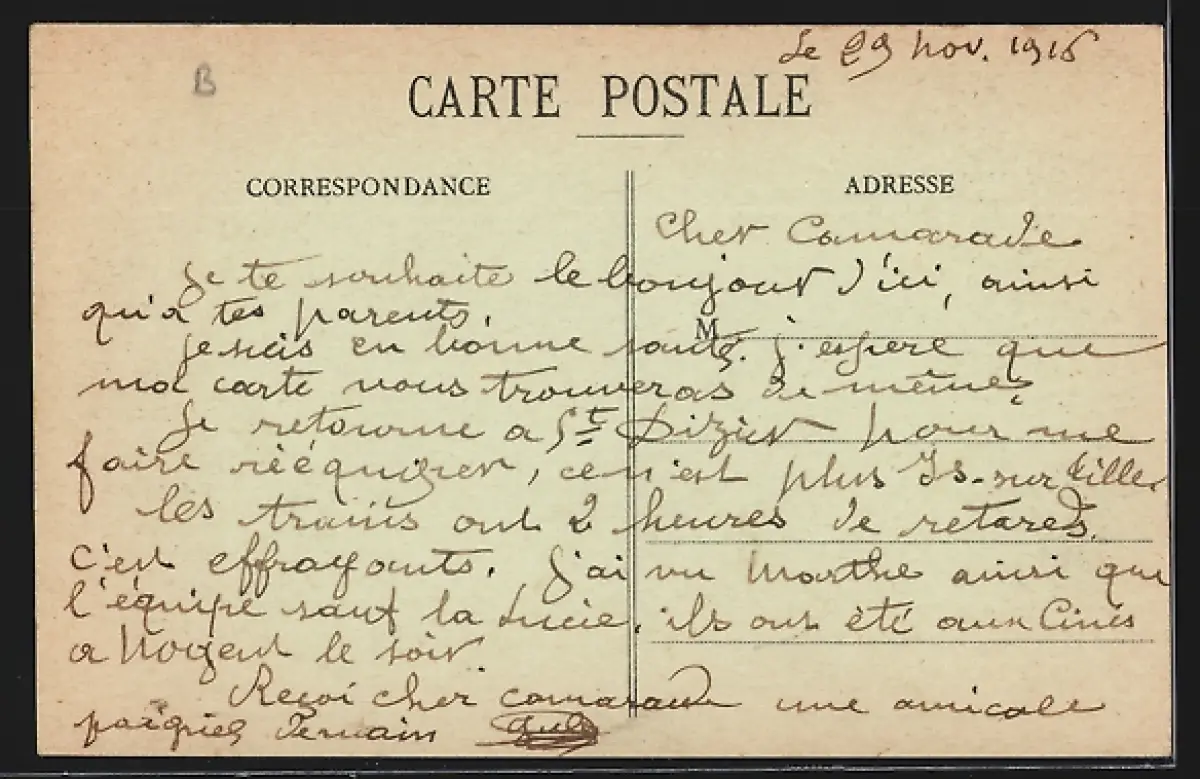 Le 29 nov. 1916
B
CARTE POSTALE
CORRESPONDANCE
ADRESSE
Cher Camarade
Je te souhaite le bonjour d'ici, ainsi
qu'a tes parents.
M
je suis en bonne santé. j'espere que
ma carte vous trouveras de même,
Je retourne a St Dizier pour me
faire rééquiper, ce n'est plus Is-sur tille,
les trains ont 2 heures de retards.
c'est effrayants. J'ai vu Marthe ainsi que
l'équipe sauf la Lucie, ils ont été aux Cinés
a Nogent le soir.
Reçoi cher camarade une amicale
poignée demain